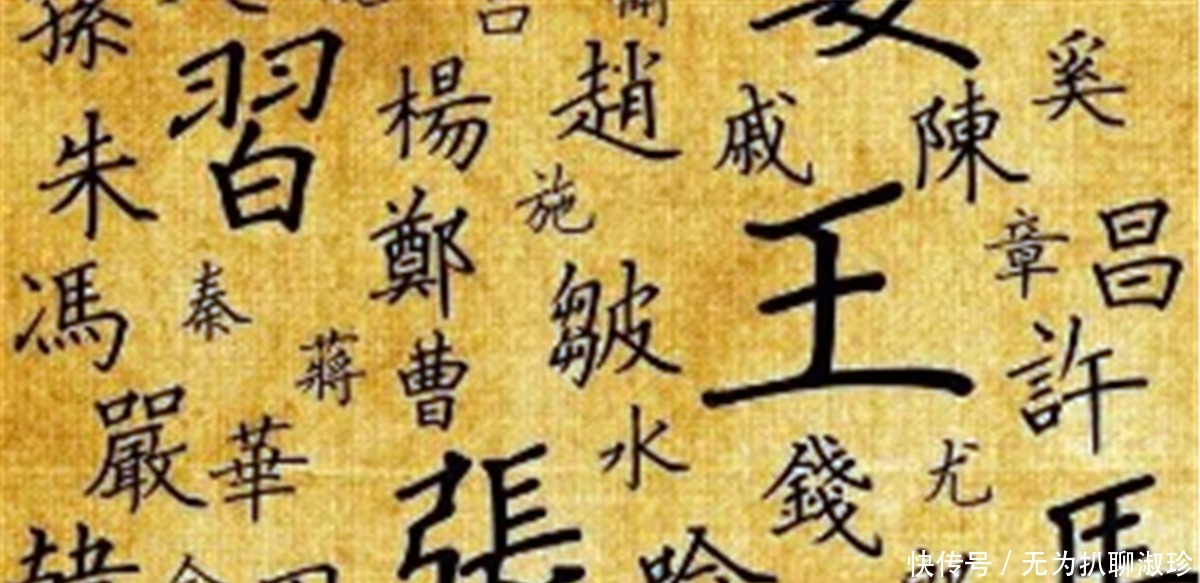 孫
習
楊
趙
戚
陳
奚
朱
施
鄭
王
章
昌
馮
秦
皺
蔣
曹
許
嚴
華
水
張
錢
尤
韓
快传号 / 无为扒聊淑珍